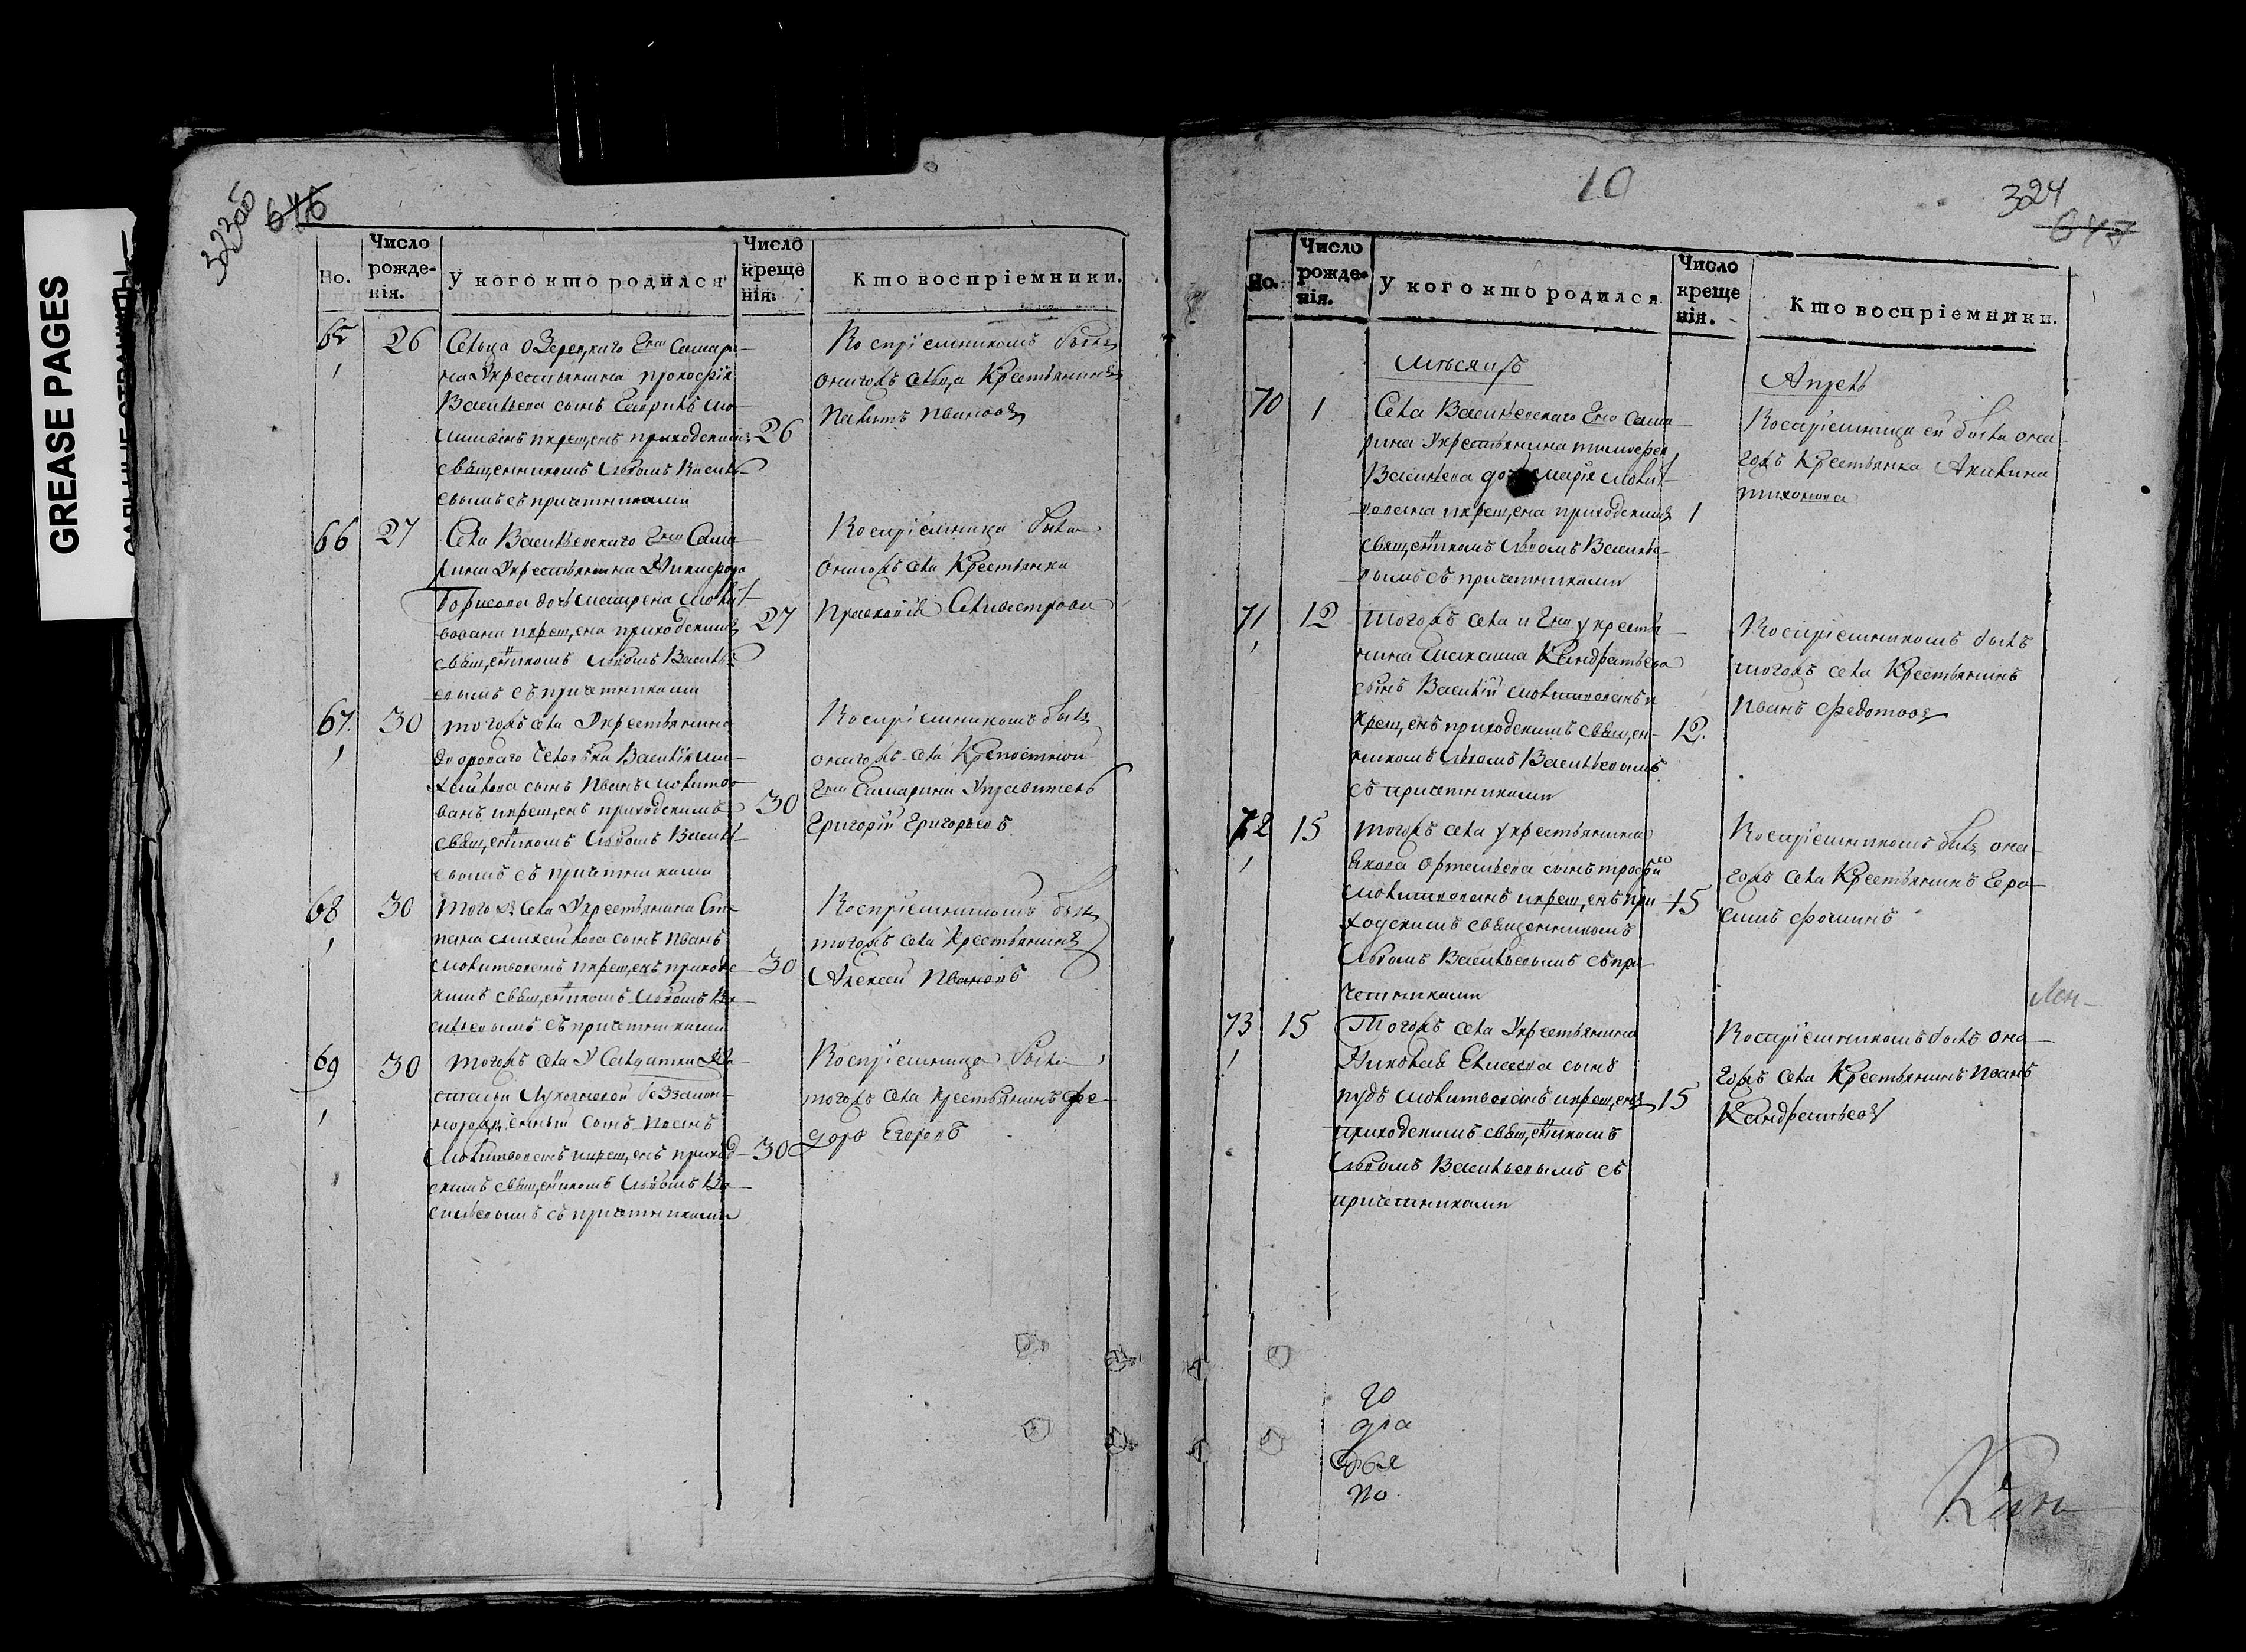 GREASE PAGES
323об
646
Но.
Число рожде-нія.
У кого кто родился
Число креще нія.
Кто воспріемники.
65
26
Сельца Озерецкаго Гна Самари-
на Укрестьянина прокофія
Васильева сынъ Гаврилъ мо-
икрещенъ приходскимъ
26
священникомъ Львомъ Василь-
евымъ съ причетниками
Воспріемникомъ былъ
оногожъ сельца Крестьянинъ
Ивановъ
66
27
Села Васильевскаго Гна Сама-
рина Укрестьянина Никифора
Борисова дочь молит-
вована икрещена приходскимъ
27
священникомъ Львомъ Василь-
евымъ съ причетниками
Воспріемница была
Оногожъ села Крестьянка
Прасковія Селивестрова
67.
30
тогожъ села Укрестьянина
двороваго человѣка Василія ми-
хайлова сынъ Иванъ молитво-
ванъ икрещенъ приходскимъ
30
священникомъ Львомъ Василь-
евымъ съ причетниками
Воспріемникомъ былъ
оногожъ села Крепостной
Гна Самарина Управитель
Григорій Григорьевъ
68
30
Тогожъ Села Укрестьянина Сте-
пана михайлова сынъ Иванъ
молитвованъ икрещенъ приходс-
30
кимъ священникомъ Львомъ Ва-
сильевымъ съ причетниками
Воспріемникомъ былъ
тогожъ села Крестьянинъ
Алексей Ивановъ
69
30
тогожъ села У Салдатки На-
стасьи беззакон-
норожденный сынъ Иванъ
Молитвованъ икрещенъ приход-
30
скимъ священникомъ Львомъ Ва-
сильевымъ съ причетниками
Воспріемница была
тогожъ села крестьянинъ Фе-
доръ Егоровъ
10
324
647
Но.
Число рожде-нія.
У кого кто родился.
Число креще нія.
Кто воспріемники.
Мѣсяцъ
Апрель
70
1
Села Васильевскаго Гна Сама-
рина Укрестьянина тимофея
Васильева дочь марія молит-
вована икрещена приходскимъ
1
священникомъ Львомъ Василье-
вымъ съ причетниками
Воспріемница ей была оно-
гожъ Крестьянка Акилина
тихонова
71
12
Тогожъ села и Гна укрестья-
нина максима Кандратьева
сынъ Василій молитвованъ и
крещенъ приходскимъ священ-
12.
никомъ Львомъ Васильевымъ
съ причетниками
Воспріемникомъ былъ
тогожъ села Крестьянинъ
Иванъ Федотовъ
72
15
Тогожъ села укрестьянина
Якова Ортемьева сынъ трофи
молитвованъ икрещенъ при-
15
ходскимъ священникомъ
Львомъ Васильевымъ съ при-
четниками
Воспріемникомъ былъ оно-
гожъ села Крестьянинъ Гера-
симъ Фоминъ
73
15
Тогожъ села Укрестьянина
Николая Елисеева сынъ
пудъ молитвованъ икрещенъ
15
приходскимъ священникомъ
Львомъ Васильевымъ съ
причетниками
Воспріемникомъ былъ оно-
гожъ села Крестьянинъ Иванъ
Кандратьевъ
го
дла
по